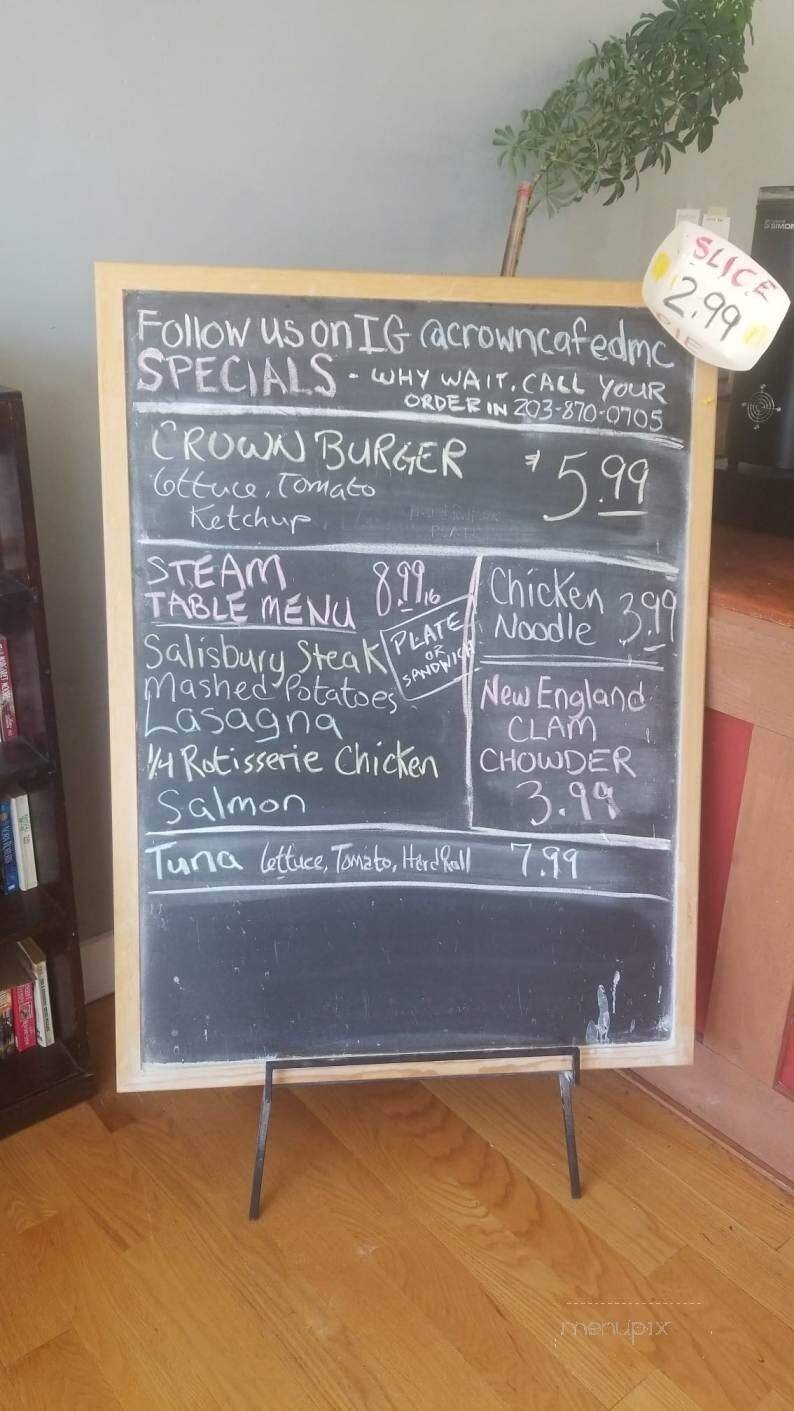 Follow us on IG @crowncafedmc
SPECIALS - WHY WAIT, CALL YOUR
ORDER IN 203-870-0705
SLICE
2.99
PIE
CROWN BURGER $5.99
lettuce, Tomato
Ketchup
STEAM 8.99
TABLE MENU
PLATE
OR
SANDWICH
Salisbury Steak
Mashed Potatoes
Lasagna
1/4 Rotisserie Chicken
Salmon
Chicken
Noodle 3.99
New England
CLAM
CHOWDER
3.99
Tuna lettuce, Tomato, Hard Roll 7.99
menupix